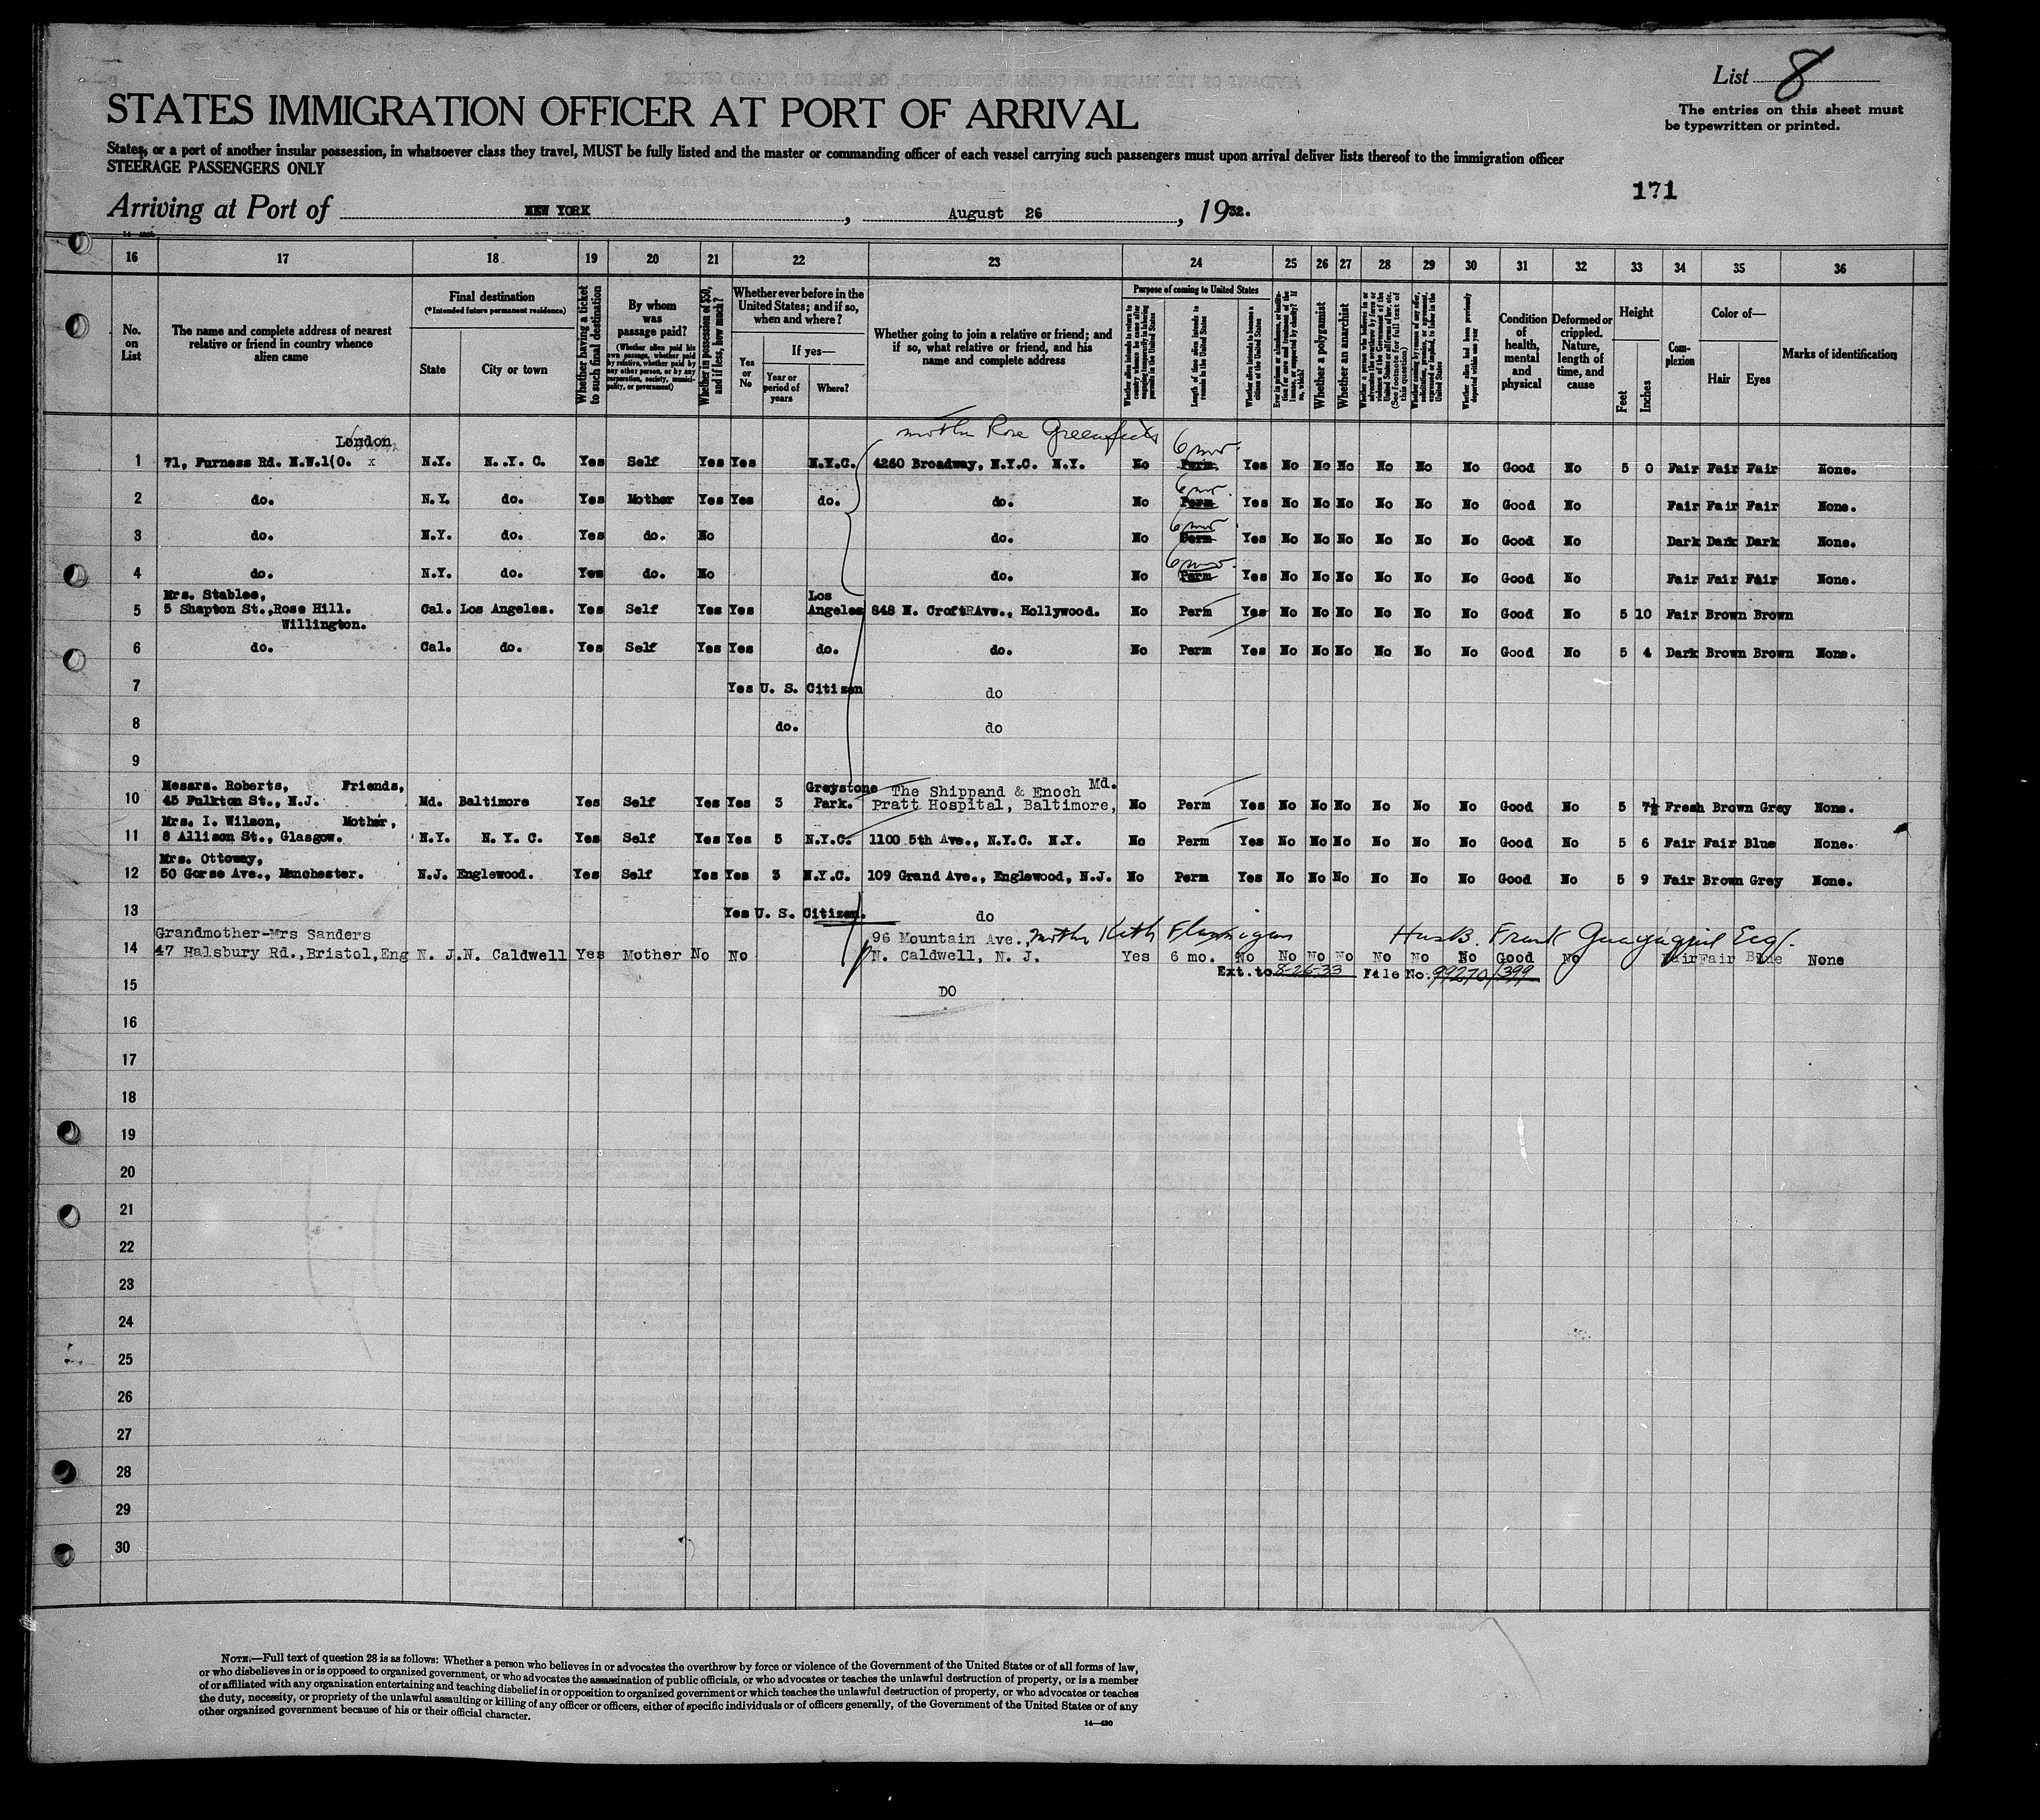 List 8
The entries on this sheet must
be typewritten or printed.
STATES IMMIGRATION OFFICER AT PORT OF ARRIVAL
States, or a port of another insular possession, in whatsoever class they travel, MUST be fully listed and the master or commanding officer of each vessel carrying such passengers must upon arrival deliver lists thereof to the immigration officer
STEERAGE PASSENGERS ONLY
171
Arriving at Port of NEW YORK, August 26, 1932.
16 17 18 19 20 21 22 23 24 25 26 27 28 29 30 31 32 33 34 35 36
No. on List
The name and complete address of nearest relative or friend in country whence alien came
Final destination
(*Intended future permanent residence)
State
City or town
Whether having a ticket to such final destination
By whom was passage paid?
(Whether alien paid his own passage, whether paid by relative, whether paid by any other person, or by any corporation, society, municipality, or government)
Whether in possession of $50, and if less, how much?
Whether ever before in the United States; and if so, when and where?
Yes or No
If yes—
Year or period of years
Where?
Whether going to join a relative or friend; and if so, what relative or friend, and his name and complete address
Purpose of coming to United States
Whether alien intends to return to country whence he came after engaging temporarily in laboring pursuits in the United States
Length of time alien intends to remain in the United States
Whether alien intends to become a citizen of the United States
Ever in prison or almshouse, or institution for care and treatment of the insane, or supported by charity? If so, which?
Whether a polygamist
Whether an anarchist
(See footnote for full text of this question)
Whether alien had been previously deported within one year
Condition of health, mental and physical
Deformed or crippled. Nature, length of time, and cause
Height
Feet
Inches
Complexion
Color of—
Hair
Eyes
Marks of identification
mother Rose
London
1 71, Furness Rd. N.W.1(0. x N.Y. N.Y.C. Yes Self Yes Yes N.Y.C. 4260 Broadway, N.Y.C. N.Y. No Perm 6 mo. Yes No No No No No No Good No 5 0 Fair Fair Fair None.
2 do. N.Y. do. Yes Mother Yes Yes do. do. No Perm 6 mo. Yes No No No No No No Good No Fair Fair Fair None.
3 do. N.Y. do. Yes do. No do. No Perm 6 mo. Yes No No No No No No Good No Dark Dark Dark None.
4 do. N.Y. do. Yes do. No do. No Perm 6 mo. Yes No No No No No No Good No Fair Fair Fair None.
Mrs. Stables, Los
5 5 Shapton St.,Rose Hill. Cal. Los Angeles. Yes Self Yes Yes Angeles 848 N. Croft Ave., Hollywood. No Perm Yes No No No No No No Good No 5 10 Fair Brown Brown
Willington.
6 do. Cal. do. Yes Self Yes Yes do. do. No Perm Yes No No No No No No Good No 5 4 Dark Brown Brown None.
7 Yes U. S. Citizen do
8 do. do
9
Messrs. Roberts, Friends, Greystone The Shippand & Enoch Md.
10 45 Fulkton St., N.J. Md. Baltimore Yes Self Yes Yes 3 Park. Pratt Hospital, Baltimore, No Perm Yes No No No No No No Good No 5 7½ Fresh Brown Grey None.
Mrs. I. Wilson, Mother,
11 8 Allison St., Glasgow. N.Y. N. Y. C. Yes Self Yes Yes 5 N.Y.C. 1100 5th Ave., N.Y.C. N.Y. No Perm Yes No No No No No No Good No 5 6 Fair Fair Blue None.
Mrs. Ottoway,
12 50 Gorse Ave., Manchester. N.J. Englewood. Yes Self Yes Yes 3 N.Y.C. 109 Grand Ave., Englewood, N.J. No Perm Yes No No No No No No Good No 5 9 Fair Brown Grey None.
13 Yes U. S. Citizen. do
Grandmother-Mrs Sanders 96 Mountain Ave., mother HusB. Frank Guayaquil
14 47 Halsbury Rd.,Bristol,Eng N. J. N. Caldwell Yes Mother No No N. Caldwell, N. J. Yes 6 mo. No No No No No No No Good No Fair Fair Blue None
Ext. to 8-26-33 File No. 99270/399
15 DO
16
17
18
19
20
21
22
23
24
25
26
27
28
29
30
NOTE.—Full text of question 28 is as follows: Whether a person who believes in or advocates the overthrow by force or violence of the Government of the United States or of all forms of law,
or who disbelieves in or is opposed to organized government, or who advocates the assassination of public officials, or who advocates or teaches the unlawful destruction of property, or is a member
of or affiliated with any organization entertaining and teaching disbelief in or opposition to organized government or which teaches the unlawful destruction of property, or who advocates or teaches
the duty, necessity, or propriety of the unlawful assaulting or killing of any officer or officers, either of specific individuals or of officers generally, of the Government of the United States or of any
other organized government because of his or their official character.
14—480